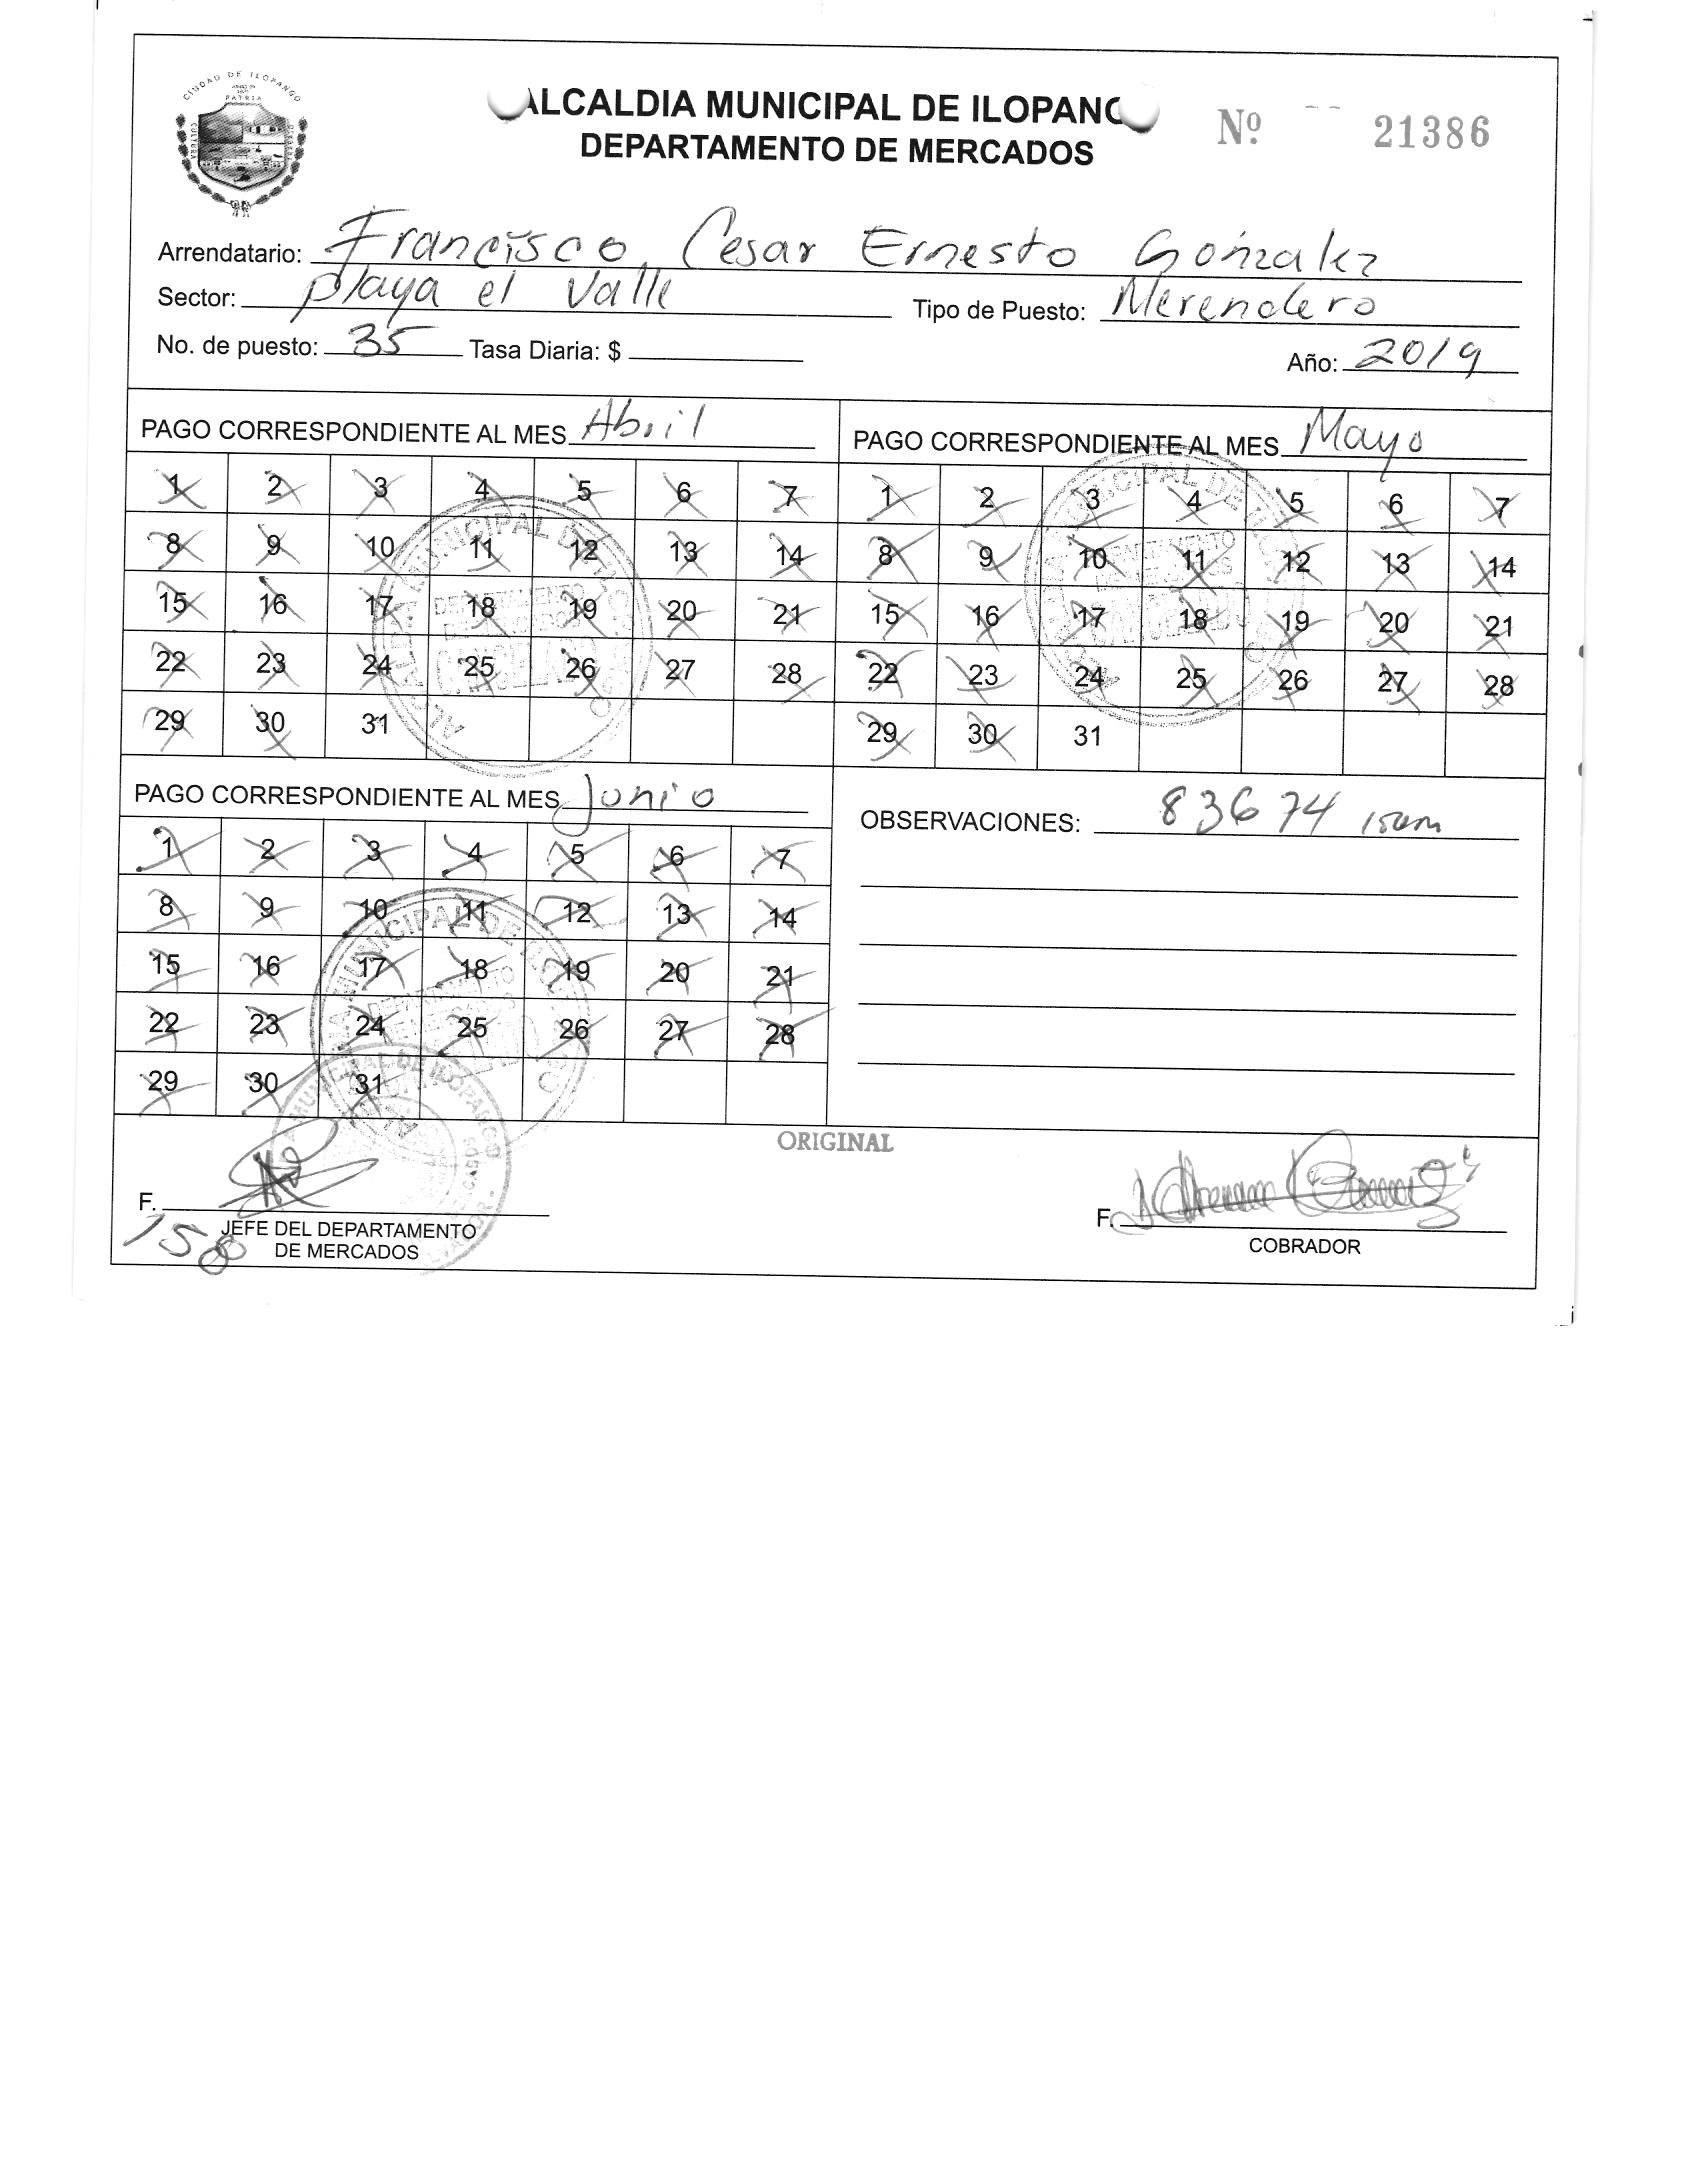 CIUDAD DE ILOPANGO
PATRIA
CULTURA
ALCALDIA MUNICIPAL DE ILOPANGO
DEPARTAMENTO DE MERCADOS
Nº 21386
Arrendatario: Francisco Cesar Ernesto Gonzalez
Sector: playa el valle Tipo de Puesto: Merendero
No. de puesto: 35 Tasa Diaria: $ Año: 2019
PAGO CORRESPONDIENTE AL MES Abril
1 2 3 4 5 6 7
8 9 10 11 12 13 14
15 16 17 18 19 20 21
22 23 24 25 26 27 28
29 30 31
PAGO CORRESPONDIENTE AL MES Mayo
1 2 3 4 5 6 7
8 9 10 11 12 13 14
15 16 17 18 19 20 21
22 23 24 25 26 27 28
29 30 31
PAGO CORRESPONDIENTE AL MES Junio
1 2 3 4 5 6 7
8 9 10 11 12 13 14
15 16 17 18 19 20 21
22 23 24 25 26 27 28
29 30 31
OBSERVACIONES: 83674
ORIGINAL
F.
158
JEFE DEL DEPARTAMENTO
DE MERCADOS
F.
COBRADOR